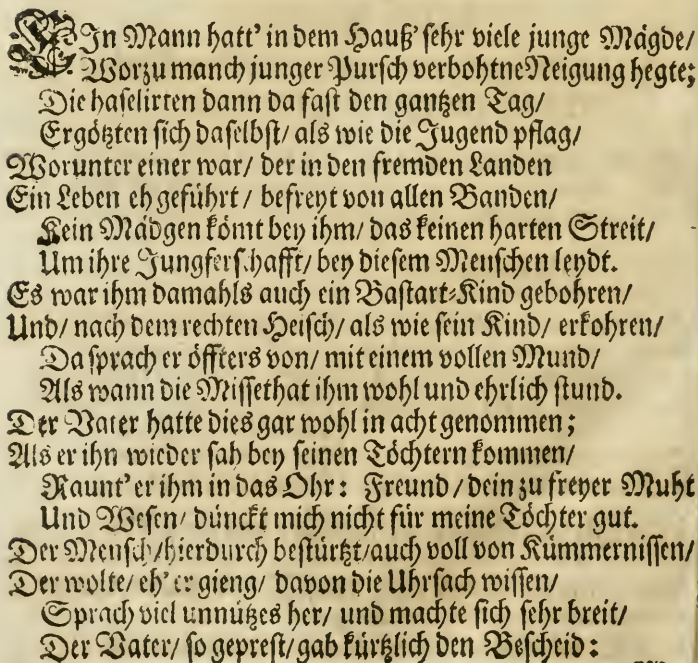 EIn Mann hatt' in dem Hauß' sehr viele junge Mägde/
Worzu manch junger Pursch verbohtne Neigung hegte;
Die haselirten dann da fast den gantzen Tag/
Ergötzten sich daselbst/ als wie die Jugend pflag/
Worunter einer war/ der in den fremden Landen
Ein Leben eh geführt/ befreyt von allen Banden/
Kein Mädgen kömt bey ihm/ das keinen harten Streit/
Um ihre Jungferschafft/ bey diesem Menschen leydt.
Es war ihm damahls auch ein Bastart-Kind gebohren/
Und/ nach dem rechten Heisch/ als wie sein Kind/ erkohren/
Da sprach er öffters von/ mit einem vollen Mund/
Als wann die Missethat ihm wohl und ehrlich stund.
Der Vater hatte dies gar wohl in acht genommen;
Als er ihn wieder sah bey seinen Töchtern kommen/
Raunt' er ihm in das Ohr: Freund/ dein zu freyer Muht
Und Wesen/ dünckt mich nicht für meine Töchter gut.
Der Mensch/ hierdurch bestürtzt/ auch voll von Kümmernissen/
Der wolte/ eh' er gieng/ davon die Uhrsach wissen/
Sprach viel unnützes her/ und machte sich sehr breit/
Der Vater/ so geprest/ gab kürtzlich den Bescheid: